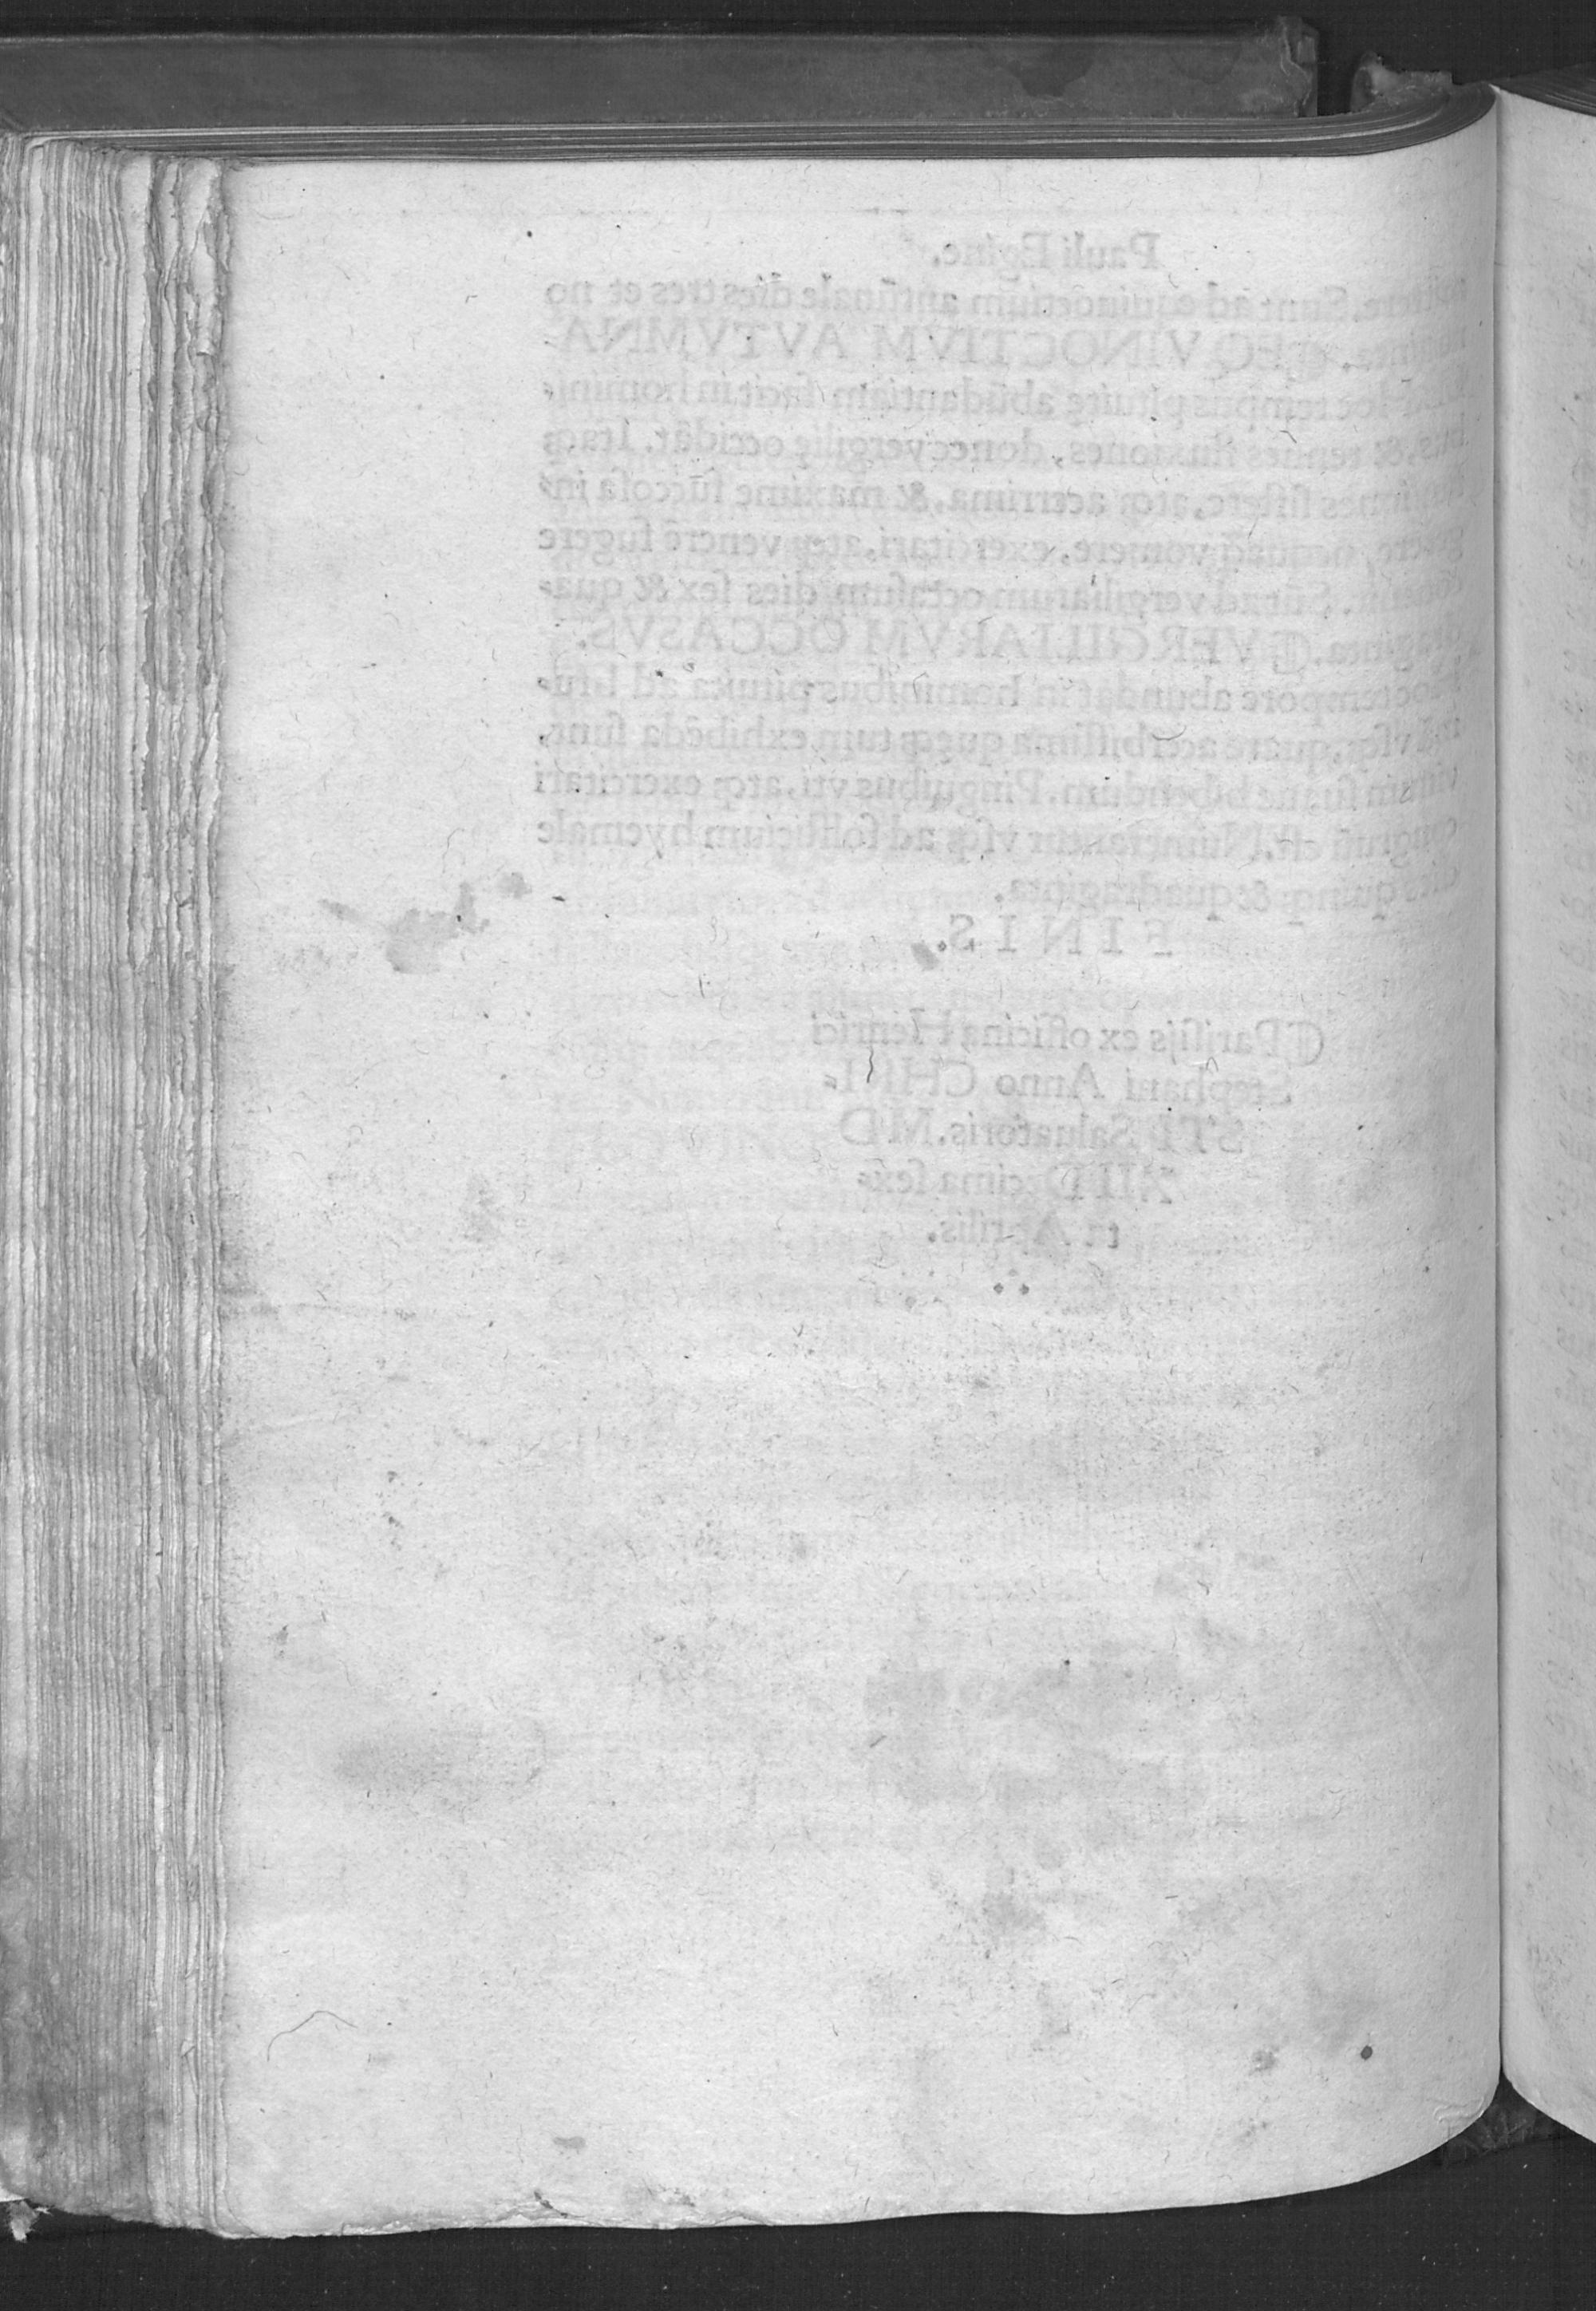 Pauli Egine.
Sunt ad equinoctium autūnale dies tres et no
ginta. ¶EQVINOCTIVM AVTVMNA
tempus pituitę abūdantiam facit in homini-
& tenues fluxiones, donec vergilię occidāt. Itaq;
sistere, atq; acerrima, & maxime succosa in-
vomere, exercitari, atq; venerē fugere
Sūt ad vergiliarum occasum dies sex & qua-
ginta. ¶VERGILIARVM OCCASVS.
tempore abundat in hominibus pituita ad bru-
vsq;, quare acerbissima queq; tum exhibēda sunt,
suaue bibendum. Pinguibus vti, atq; exercitari
congruū est. Numerantur vsq; ad solsticium hyemale
dies quinq; & quadraginta.
FINIS.
¶Parisijs ex officina Henrici
Stephani Anno CHRI-
STI Saluatoris. MD
XII Decima sex-
ta Aprilis.